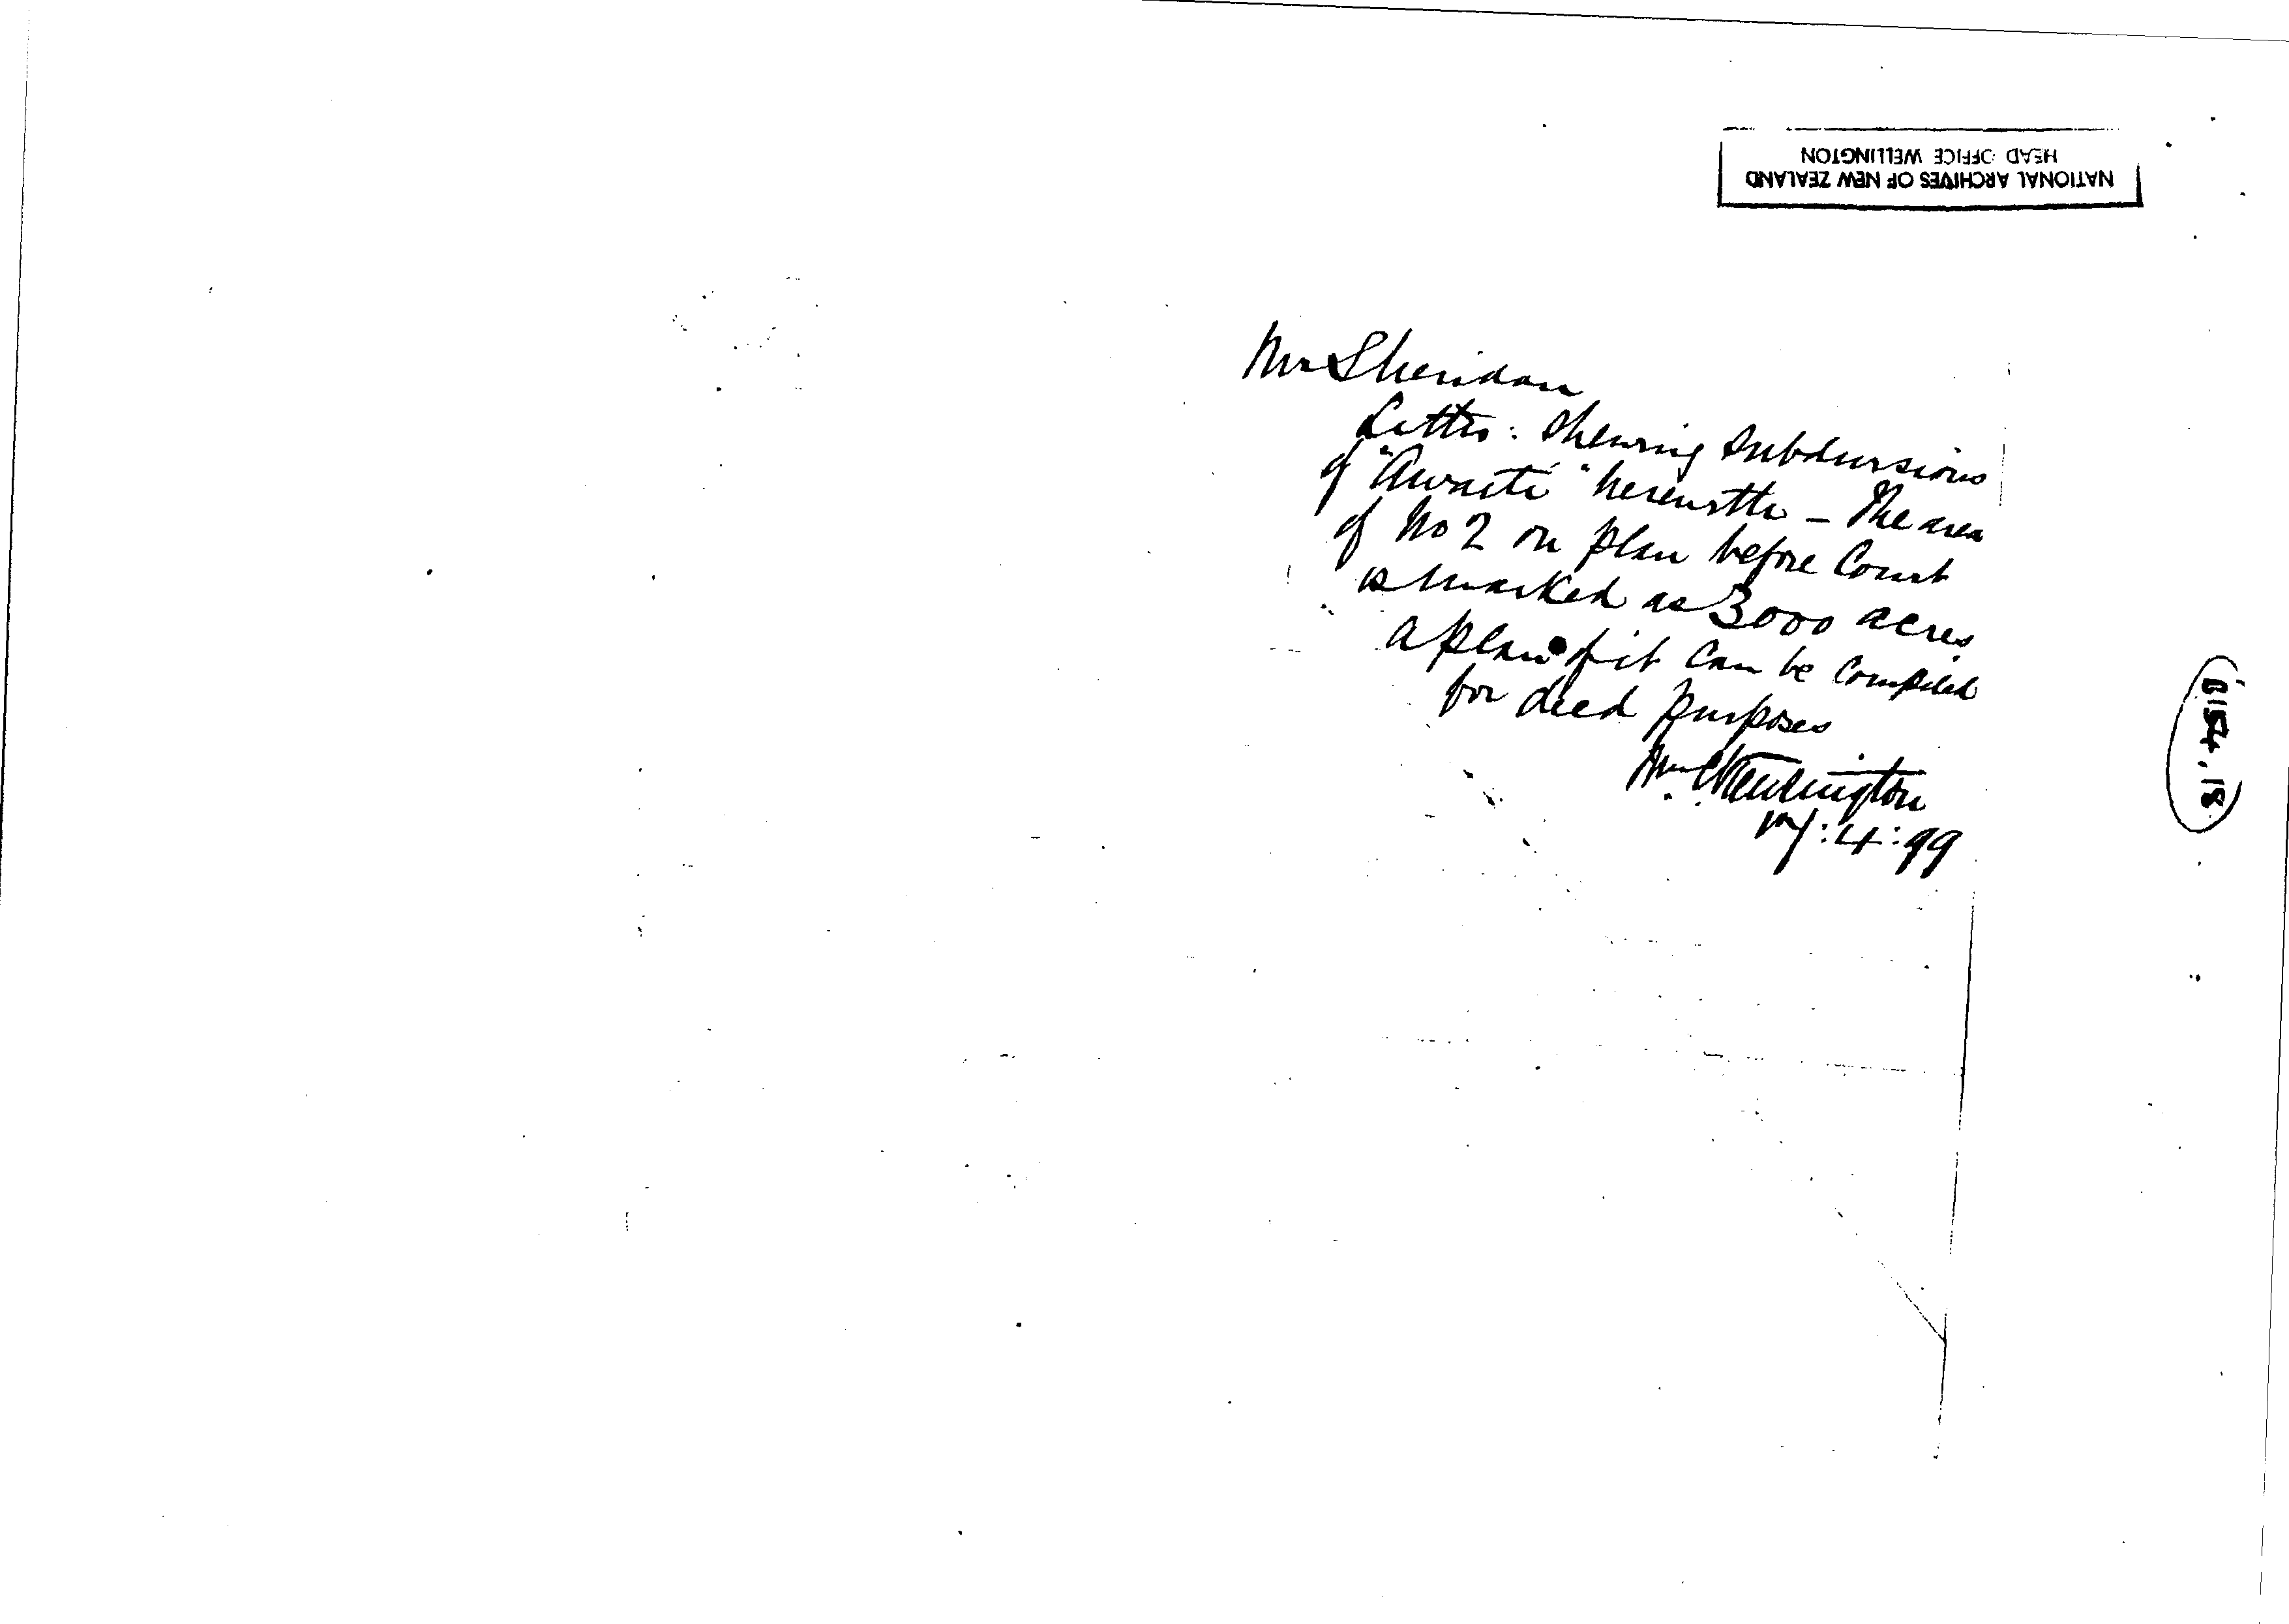 NATIONAL ARCHIVES OF NEW ZEALAND
HEAD OFFICE WELLINGTON
Mr Sheridan
Litho: shewing subdivisions
of "Awaiti" herewith – The area
of No 2 on plan before Court
is marked as 3000 acres
a plan of it can be compiled
for deed purposes
Wm C Kensington
17:4:99
B154.18